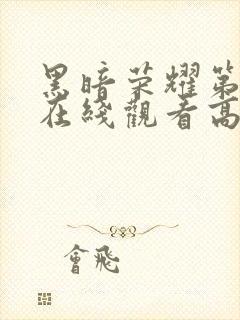 黑暗荣耀第
在綫觀看高
會飛